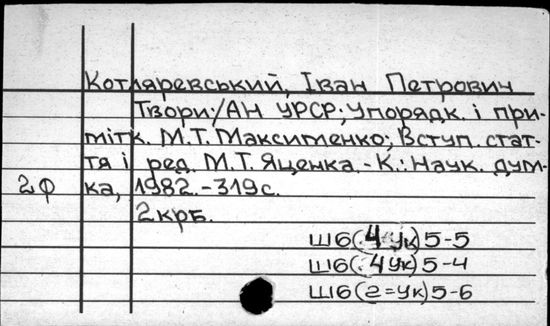 Котляревський, Іван Петрович
Твори:/АН УРСР; Упорядк. і при-
мітк. М.Т. Максименко; Вступ. стат-
тя і ред. М.Т. Яценка.-К.: Наук. дум-
2ф ка, 1982.-319с.
2крб.
Ш6(4Ук)5-5
Ш6(4Ук)5-4
Ш6(2=Ук)5-6